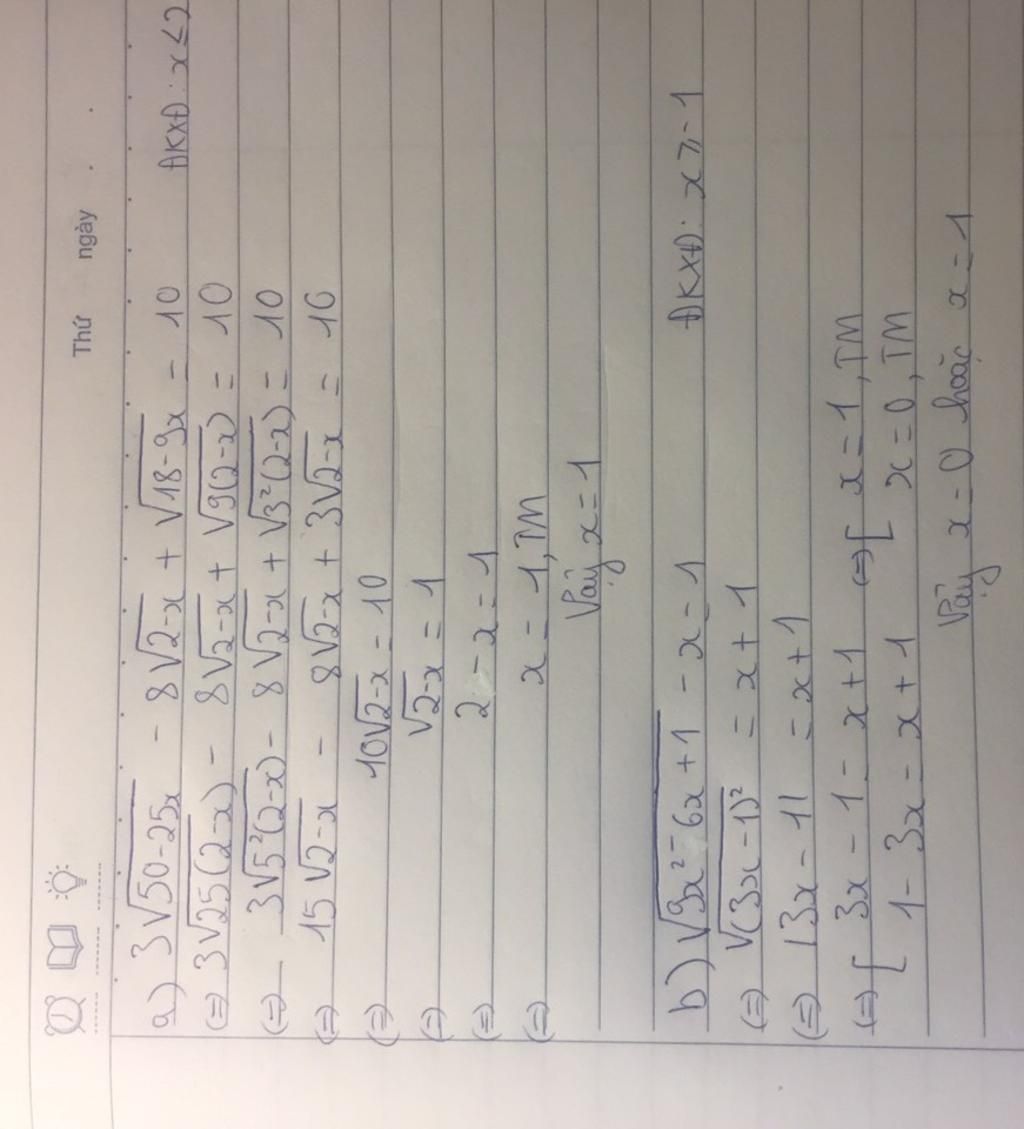 Thứ ngày . .
a) 3√50-25x - 8√2-x + √18-9x = 10 ĐKXĐ: x ≤ 2
(=) 3√25(2-x) - 8√2-x + √9(2-x) = 10
(=) 3√5²(2-x) - 8√2-x + √3²(2-x) = 10
(=) 15√2-x - 8√2-x + 3√2-x = 10
(=) 10√2-x = 10
(=) √2-x = 1
(=) 2-x = 1
(=) x = 1, TM
Vậy x = 1
b) √9x²-6x+1 - x = 1 ĐKXĐ: x ≥ -1
(=) √(3x-1)² = x+1
(=) |3x-1| = x+1
(=) [ 3x-1 = x+1 (=) [ x = 1, TM
1-3x = x+1 x = 0, TM
Vậy x = 0 hoặc x = 1